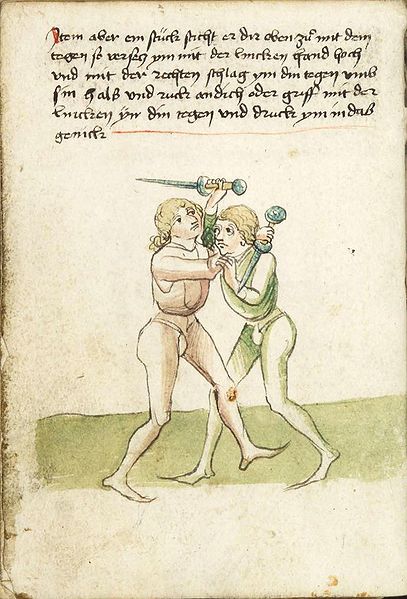 Item aber ein stuck sticht er dir oben zu mit dem
tegen so versetz ym mit der lincken hand hoch
vnd mit der rechten schlag ym din tegen vmb
sin hals vnd ruck an dich oder griff mit der
lincken ym din tegen vnd druck ym in das
genick